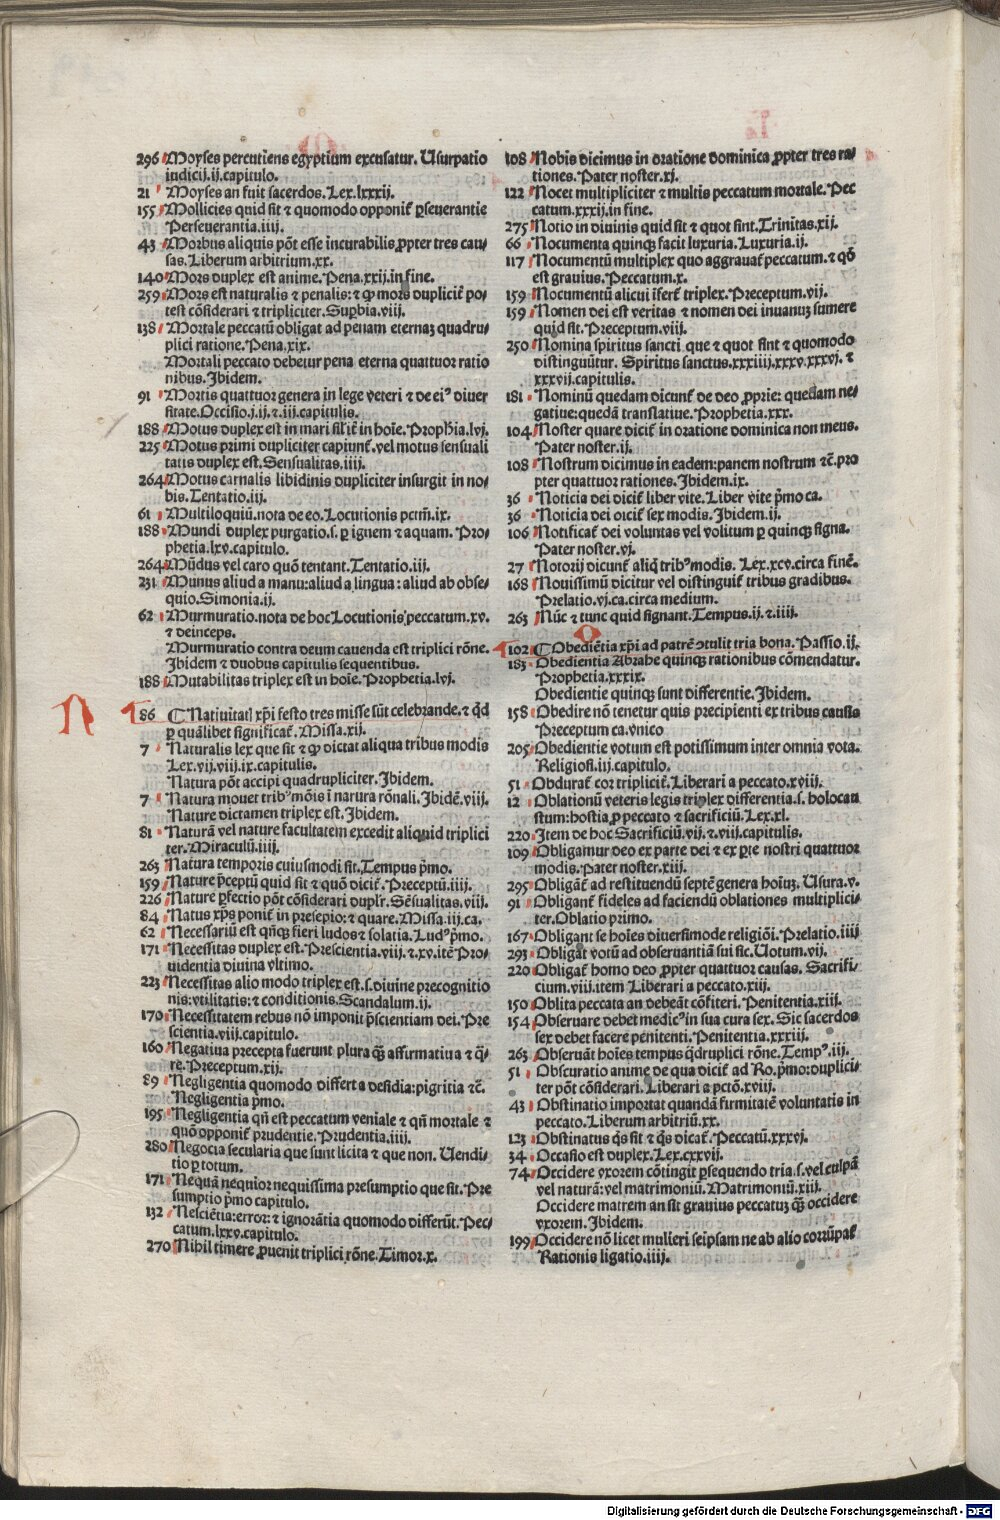 296 Moyses percutiens egyptium excusatur. Usurpatio
iudicij.ij.capitulo.
21 Moyses an fuit sacerdos. Lex.lxxxij.
155 Mollicies quid sit ⁊ quomodo opponit᷑ ꝑseuerantie
Perseuerantia.iiij.
43 Morbus aliquis pōt esse incurabilis ꝓpter tres cau⸗
sas. Liberum arbitrium.xx.
140 Mors duplex est anime. Pena.xxij.in fine.
259 Mors est naturalis ⁊ penalis: ⁊ ꝙ mors duplicit᷑ po⸗
test cōsiderari ⁊ tripliciter. Suꝑbia.viij.
138 Mortale peccatū obligat ad penam eternaꝫ quadru⸗
plici ratione. Pena.xix.
Mortali peccato debetur pena eterna quattuor ratio
nibus. Ibidem.
91 Mortis quattuor genera in lege veteri ⁊ de eiꝰ diuer
sitate. Occisio.j.ij.⁊.iij.capitulis.
188 Motus duplex est in mari sil'it᷑ in hoīe. Prophīa.lvj.
225 Motus primi dupliciter capiunt᷑. vel motus sensuali
tatis duplex est. Sensualitas.iiij.
264 Motus carnalis libidinis dupliciter insurgit in no⸗
bis. Tentatio.iij.
61 Multiloquiū.nota de eo. Locutionis pctm̄.ix.
188 Mundi duplex purgatio.s. ꝑ ignem ⁊ aquam. Pro⸗
phetia.lxv.capitulo.
264 Mūdus vel caro quō tentant. Tentatio.iij.
231 Munus aliud a manu: aliud a lingua: aliud ab obse⸗
quio. Simonia.ij.
62 Murmuratio.nota de hoc Locutionis peccatum.xv.
⁊ deinceps.
Murmuratio contra deum cauenda est triplici rōne.
Ibidem ⁊ duobus capitulis sequentibus.
188 Mutabilitas triplex est in hoīe. Prophetia.lvj.
N
86 Natiuitatꝭ xp̄i festo tres misse sūt celebrande. ⁊ qd
ꝑ quālibet significat᷑. Missa.xij.
7 Naturalis lex que sit ⁊ ꝙ dictat aliqua tribus modis
Lex.vij.viij.ix.capitulis.
Natura pōt accipi quadrupliciter. Ibidem.
7 Natura mouet tribꝰ mōis ī narura rōnali. Ibidē.viij.
Nature dictamen triplex est. Ibidem.
81 Naturā vel nature facultatem excedit aliquid triplici
ter. Miraculū.iiij.
263 Natura temporis cuiusmodi sit. Tempus p̄mo.
159 Nature p̄ceptū quid sit ⁊ quō dicit᷑. Preceptū.iiij.
226 Nature ꝑfectio pōt cōsiderari dupl'r. Sēsualitas.viij.
84 Natus xp̄s ponit᷑ in presepio: ⁊ quare. Missa.iij.ca.
62 Necessariū est qn̄qꝫ fieri ludos ⁊ solatia. Ludꝰ p̄mo.
171 Necessitas duplex est. Prescientia.viij.⁊.xv.itē Pro⸗
uidentia diuina vltimo.
223 Necessitas alio modo triplex est.s. diuine precognitio
nis: vtilitatis: ⁊ conditionis. Scandalum.ij.
170 Necessitatem rebus nō imponit p̄scientiam dei. Pre
scientia.viij.capitulo.
160 Negatiua precepta fuerunt plura qꝫ affirmatiua ⁊ q̄⸗
re. Preceptum.xij.
89 Negligentia quomodo differt a desidia: pigritia ⁊c̄.
Negligentia p̄mo.
195 Negligentia qn̄ est peccatum veniale ⁊ qn̄ mortale ⁊
quō opponit᷑ prudentie. Prudentia.iiij.
280 Negocia secularia que sunt licita ⁊ que non. Uendi⸗
tio ꝑ totum.
171 Nequā nequior nequissima presumptio que sit. Pre
sumptio p̄mo capitulo.
132 Nesciētia: error: ⁊ ignorātia quomodo differūt. Pec⸗
catum.lxxv.capitulo.
270 Nihil timere ꝓuenit triplici rōne. Timor.x.
108 Nobis dicimus in oratione dominica ꝓpter tres ra⸗
tiones. Pater noster.xj.
122 Nocet multipliciter ⁊ multis peccatum mortale. Pec
catum.xxxij.in fine.
275 Notio in diuinis quid sit ⁊ quot sint. Trinitas.xij.
66 Nocumenta quinqꝫ facit luxuria. Luxuria.ij.
117 Nocumentū multiplex quo aggrauat᷑ peccatum. ⁊ qd̄
est grauius. Peccatum.x.
159 Nocumentū alicui īfert᷑ triplex. Preceptum.vij.
159 Nomen dei est veritas ⁊ nomen dei inuanuꝫ sumere
quid sit. Preceptum.viij.
250 Nomina spiritus sancti que ⁊ quot sint ⁊ quomodo
distinguūtur. Spiritus sanctus.xxxiiij.xxxv.xxxvj.⁊
xxxvij.capitulis.
181 Nominū quedam dicunt᷑ de deo ꝓprie: quedam ne⸗
gatiue: quedā translatiue. Prophetia.xxx.
104 Noster quare dicit᷑ in oratione dominica non meus.
Pater noster.ij.
108 Nostrum dicimus in eadem: panem nostrum ⁊c̄. pro
pter quattuor rationes. Ibidem.ix.
36 Noticia dei dicit᷑ liber vite. Liber vite p̄mo ca.
36 Noticia dei dicit᷑ sex modis. Ibidem.ij.
106 Notificat᷑ dei voluntas vel volitum ꝑ quinqꝫ signa.
Pater noster.vj.
27 Notorij dicunt᷑ aliq̄ tribꝰ modis. Lex.xcv.circa finē.
168 Nouissimū dicitur vel distinguit᷑ tribus gradibus.
Prelatio.vj.ca.circa medium.
263 Nūc ⁊ tunc quid signant. Tempus.ij.⁊.iiij.
O
102 Obediētia xp̄i ad patrē ꝯtulit tria bona. Passio.ij.
183 Obedientia Abrahe quinqꝫ rationibus cōmendatur.
Prophetia.xxxix.
Obedientie quinqꝫ sunt differentie. Ibidem.
158 Obedire nō tenetur quis precipienti ex tribus causis
Preceptum ca.vnico
205 Obedientie votum est potissimum inter omnia vota.
Religiosi.iij.capitulo.
51 Obdurat᷑ cor triplicit᷑. Liberari a peccato.xviij.
12 Oblationū veteris legis triplex differentia.s. holocau
stum: hostia ꝓ peccato ⁊ sacrificiū. Lex.xl.
220 Item de hoc Sacrificiū.vij.⁊.viij.capitulis.
109 Obligamur deo ex parte dei ⁊ ex ꝑte nostri quattuor
modis. Pater noster.xiij.
295 Obligāt᷑ ad restituendū septē genera hoīuꝫ. Usura.v.
91 Obligant᷑ fideles ad faciendū oblationes multiplici⸗
ter. Oblatio primo.
167 Obligant se hoīes diuersimode religiōi. Prelatio.iiij
293 Obligat votū ad obseruantiā sui sic. Uotum.vij.
220 Obligat᷑ homo deo ꝓpter quattuor causas. Sacrifi⸗
cium.viij.item Liberari a peccato.xiij.
150 Oblita peccata an debeāt cōfiteri. Penitentia.xiij.
154 Obseruare debet medicꝰ in sua cura sex. Sic sacerdos
sex debet facere penitenti. Penitentia.xxxiij.
263 Obseruāt hoīes tempus q̄druplici rōne. Tempꝰ.iij.
51 Obscuratio anime de qua dicit᷑ ad Ro.p̄mo: duplici⸗
ter pōt cōsiderari. Liberari a pctō.xviij.
43 Obstinatio importat quandā firmitatē voluntatis in
peccato. Liberum arbitriū.xx.
123 Obstinatus q̄s sit ⁊ q̄s dicat᷑. Peccatū.xxxvj.
34 Occasio est duplex. Lex.cxxvij.
74 Occidere vxorem cōtingit ꝑsequendo tria.s. vel culpā
vel naturā: vel matrimoniū. Matrimoniū.xiij.
Occidere matrem an sit grauius peccatuꝫ qꝫ occidere
vxorem. Ibidem.
199 Occidere nō licet mulieri seipsam ne ab alio corrūpat᷑
Rationis ligatio.iiij.
Digitalisierung gefördert durch die Deutsche Forschungsgemeinschaft - DFG